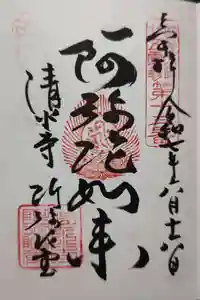 奉拝 令和七年八月十八日
阿弥陀如来
清水寺 阿弥陀堂